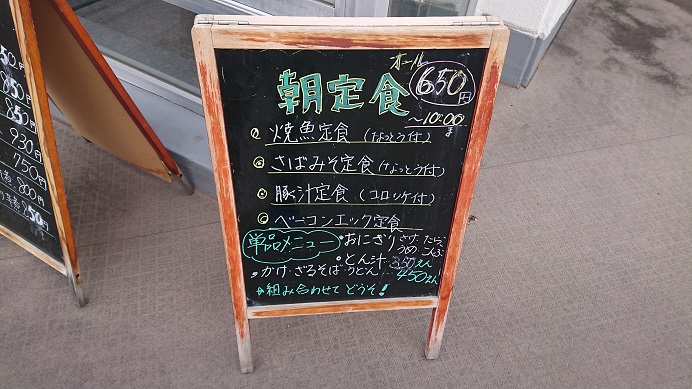 50円
850
850円
930円
750円
800円
850円
朝定食
オール
650円
〜10:00まで
焼魚定食（なっとう付）
さばみそ定食（なっとう付）
豚汁定食（コロッケ付）
ベーコンエッグ定食
単品メニュー
・おにぎり さけ・たらこ
うめ・こんぶ
・とん汁…350えん
・かけ・ざるそば・うどん…450えん
組み合わせてどうぞ！